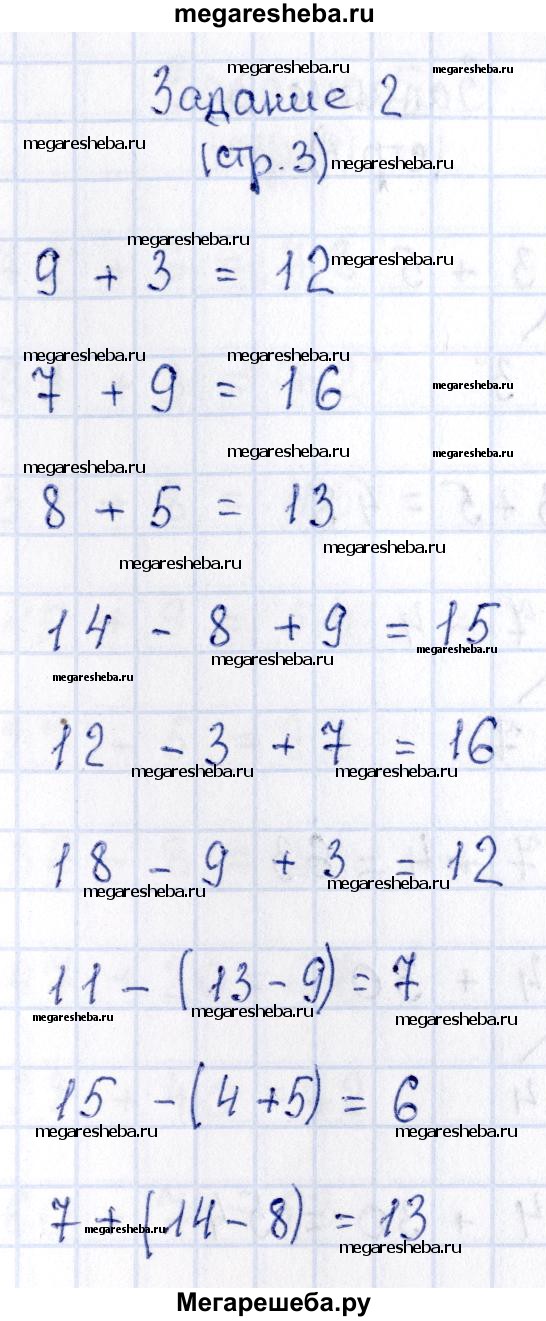 megaresheba.ru
megaresheba.ru megaresheba.ru
Задание 2
megaresheba.ru
(стр. 3) megaresheba.ru
megaresheba.ru
9 + 3 = 12 megaresheba.ru
megaresheba.ru megaresheba.ru
7 + 9 = 16 megaresheba.ru
megaresheba.ru megaresheba.ru
megaresheba.ru
8 + 5 = 13
megaresheba.ru
megaresheba.ru
14 - 8 + 9 = 15
megaresheba.ru
megaresheba.ru
megaresheba.ru
12 - 3 + 7 = 16
megaresheba.ru megaresheba.ru
18 - 9 + 3 = 12
megaresheba.ru megaresheba.ru
11 - (13 - 9) = 7
megaresheba.ru megaresheba.ru megaresheba.ru
15 - (4 + 5) = 6
megaresheba.ru megaresheba.ru
7 + (14 - 8) = 13
megaresheba.ru
megaresheba.ru
Мегарешеба.ру